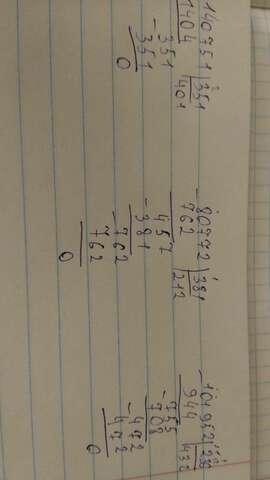 140751 | 351
- 1404 | 401
- 351
351
0
- 80772 | 381
762 | 212
- 457
381
- 762
762
0
- 101952 | 236
944 | 432
- 755
708
- 472
472
0